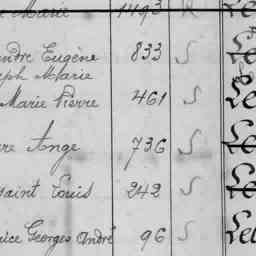 Marie 1193
ndre Eugène 833 S Le
eph Marie
Marie Pierre 461 S Le
re Ange 736 S Le
saint Louis 242 S Le
ice Georges André 96 S Lel